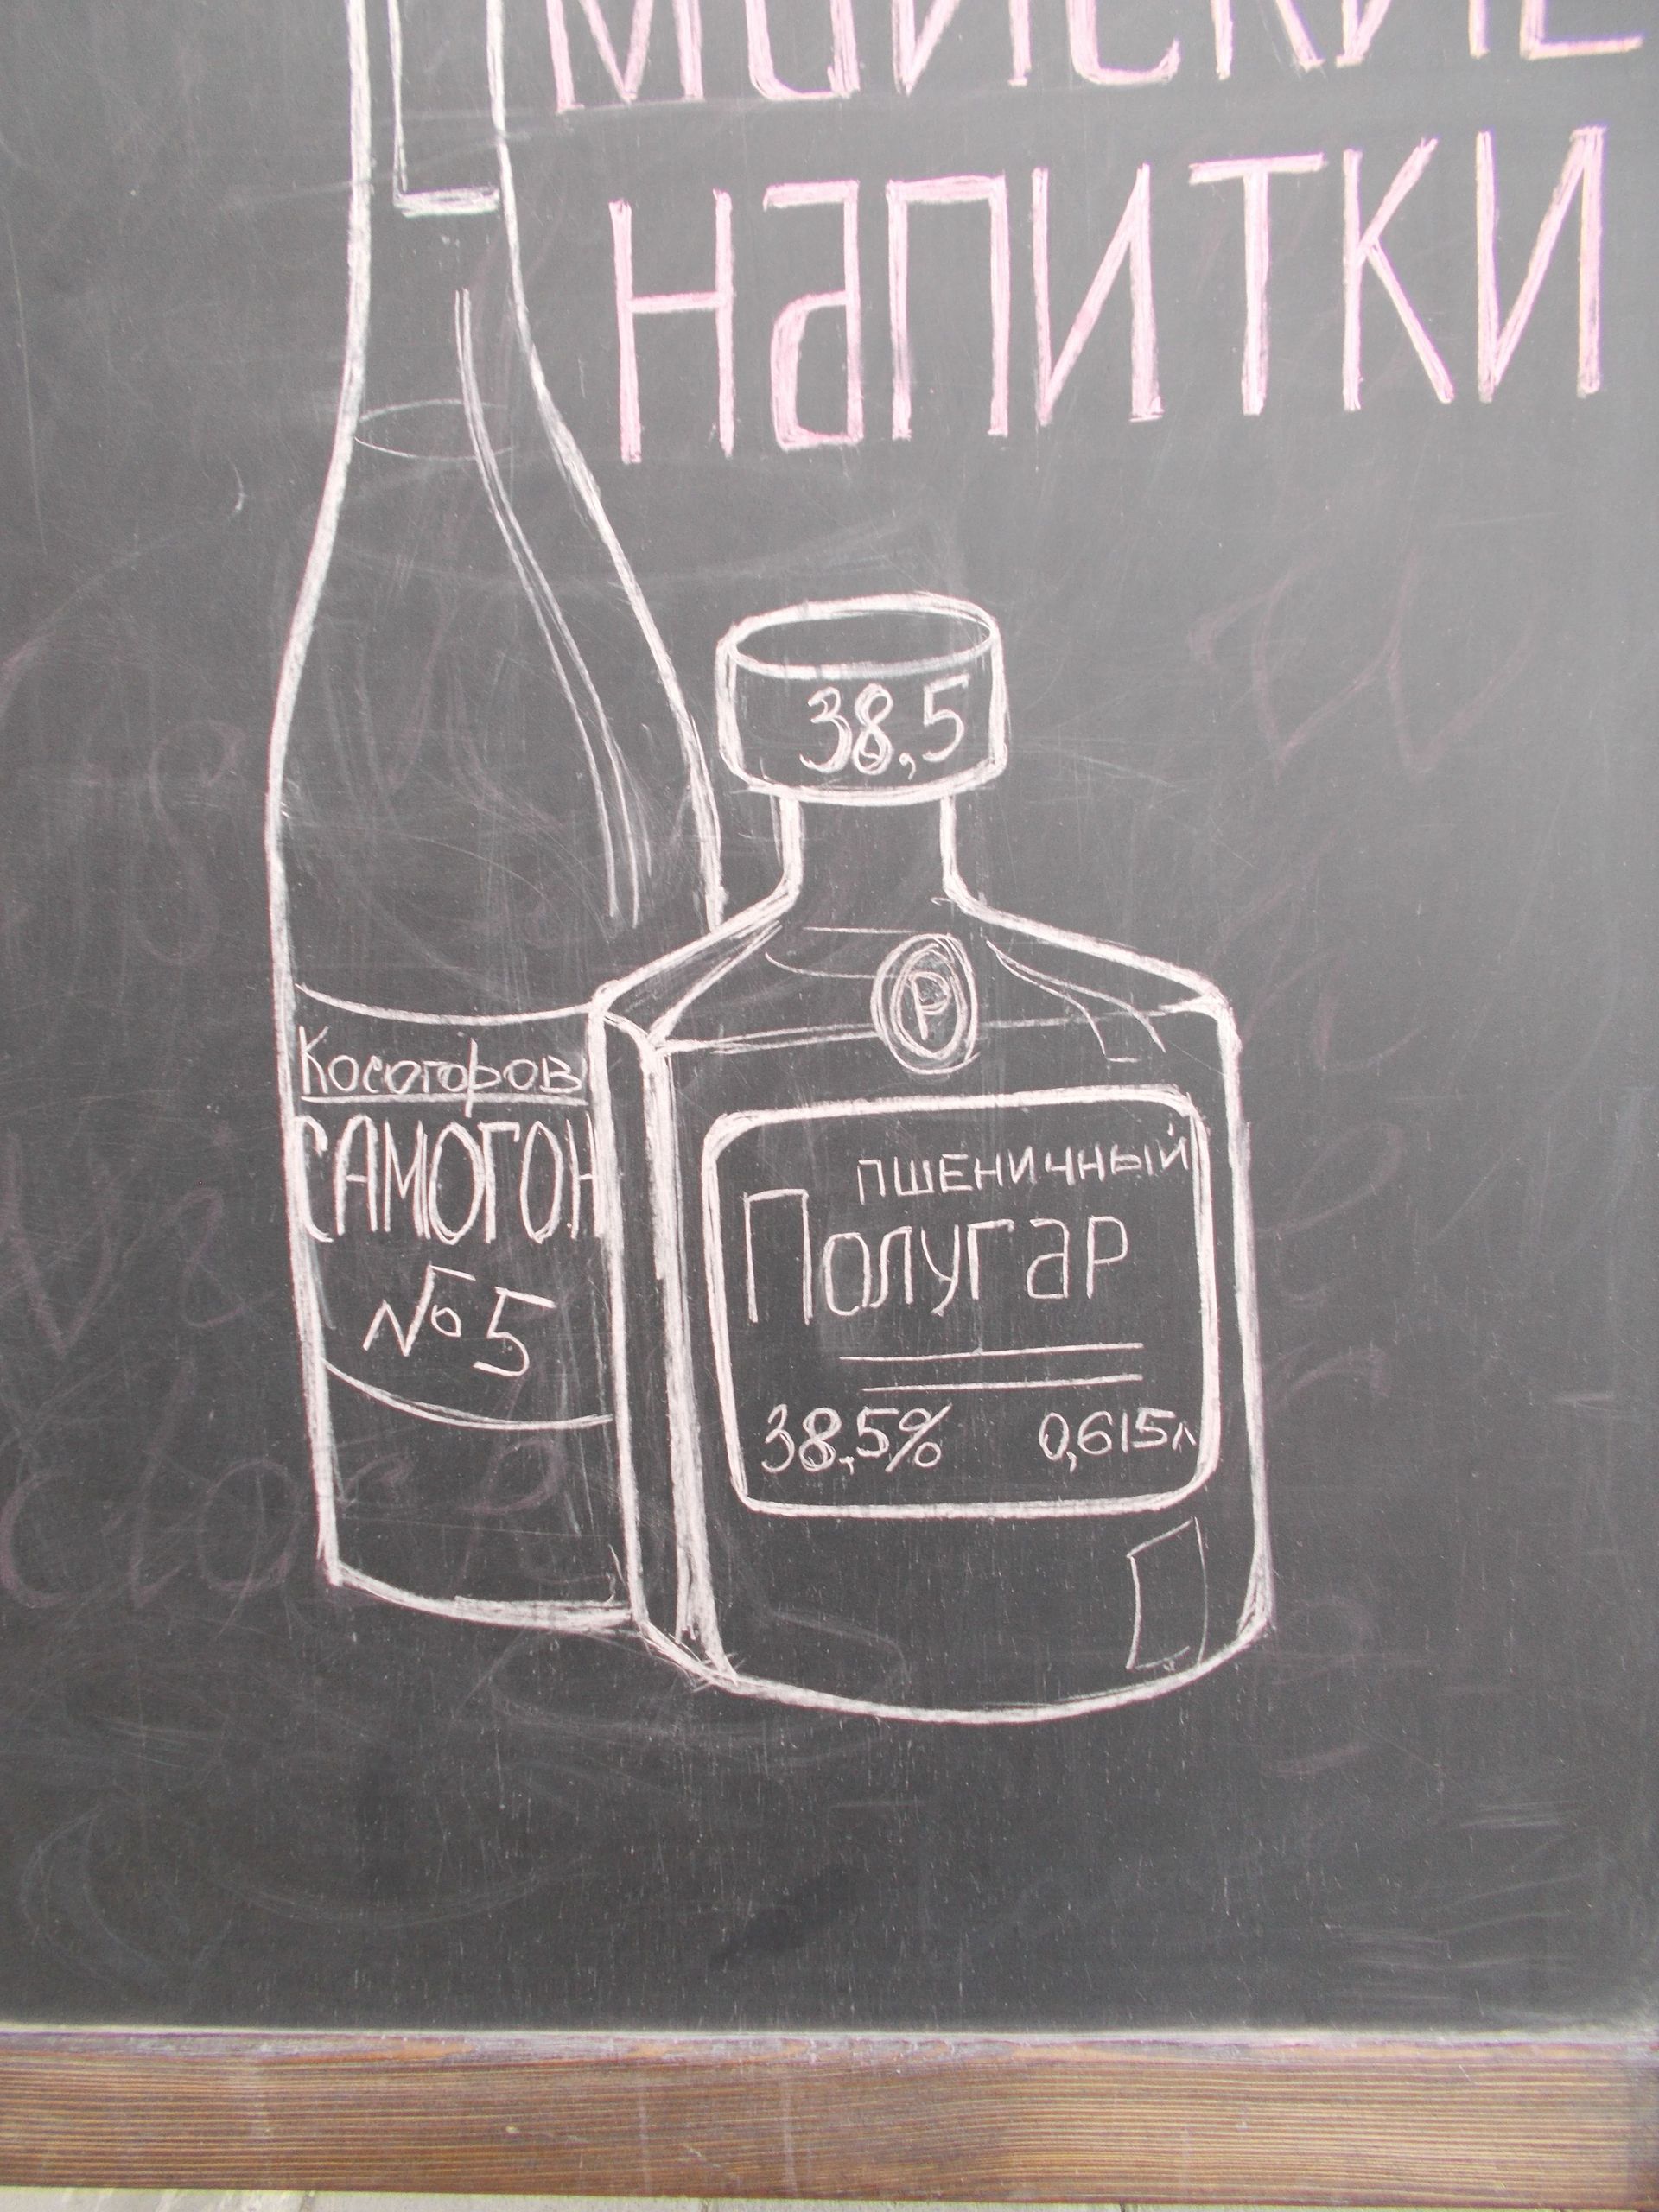 майские
напитки
38,5
Р
Косогоров
САМОГОН
№5
пшеничный
Полугар
38,5% 0,615л